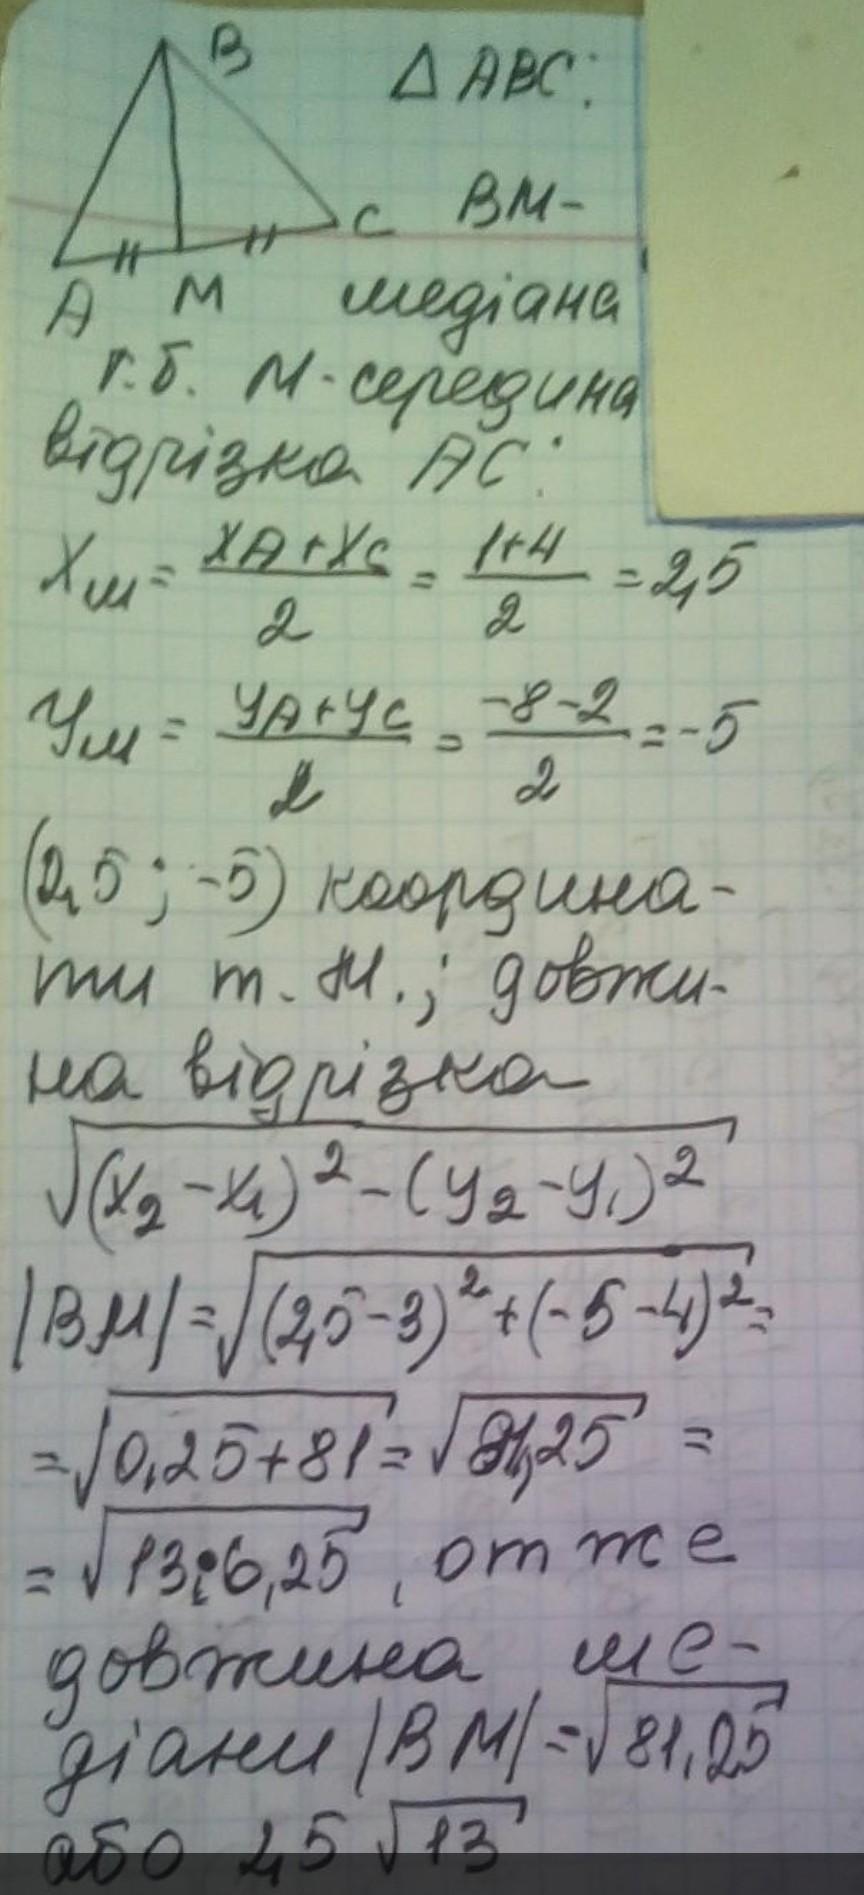 B
△ ABC:
BM-
C
A M медіана
т.б. М-середина
відрізка AC:
Xм = (XA+XC)/2 = (1+4)/2 = 2,5
Yм = (YA+YC)/2 = (-8-2)/2 = -5
(2,5 ; -5) координа-
ти т. М.; довжи-
на відрізка
√((X₂-X₁)²-(Y₂-Y₁)²)
|BM| = √((2,5-3)²+(-5-4)²) =
= √(0,25+81) = √(81,25) =
= √(13·6,25), отже
довжина ме-
діани |BM| = √(81,25)
або 2,5 √13